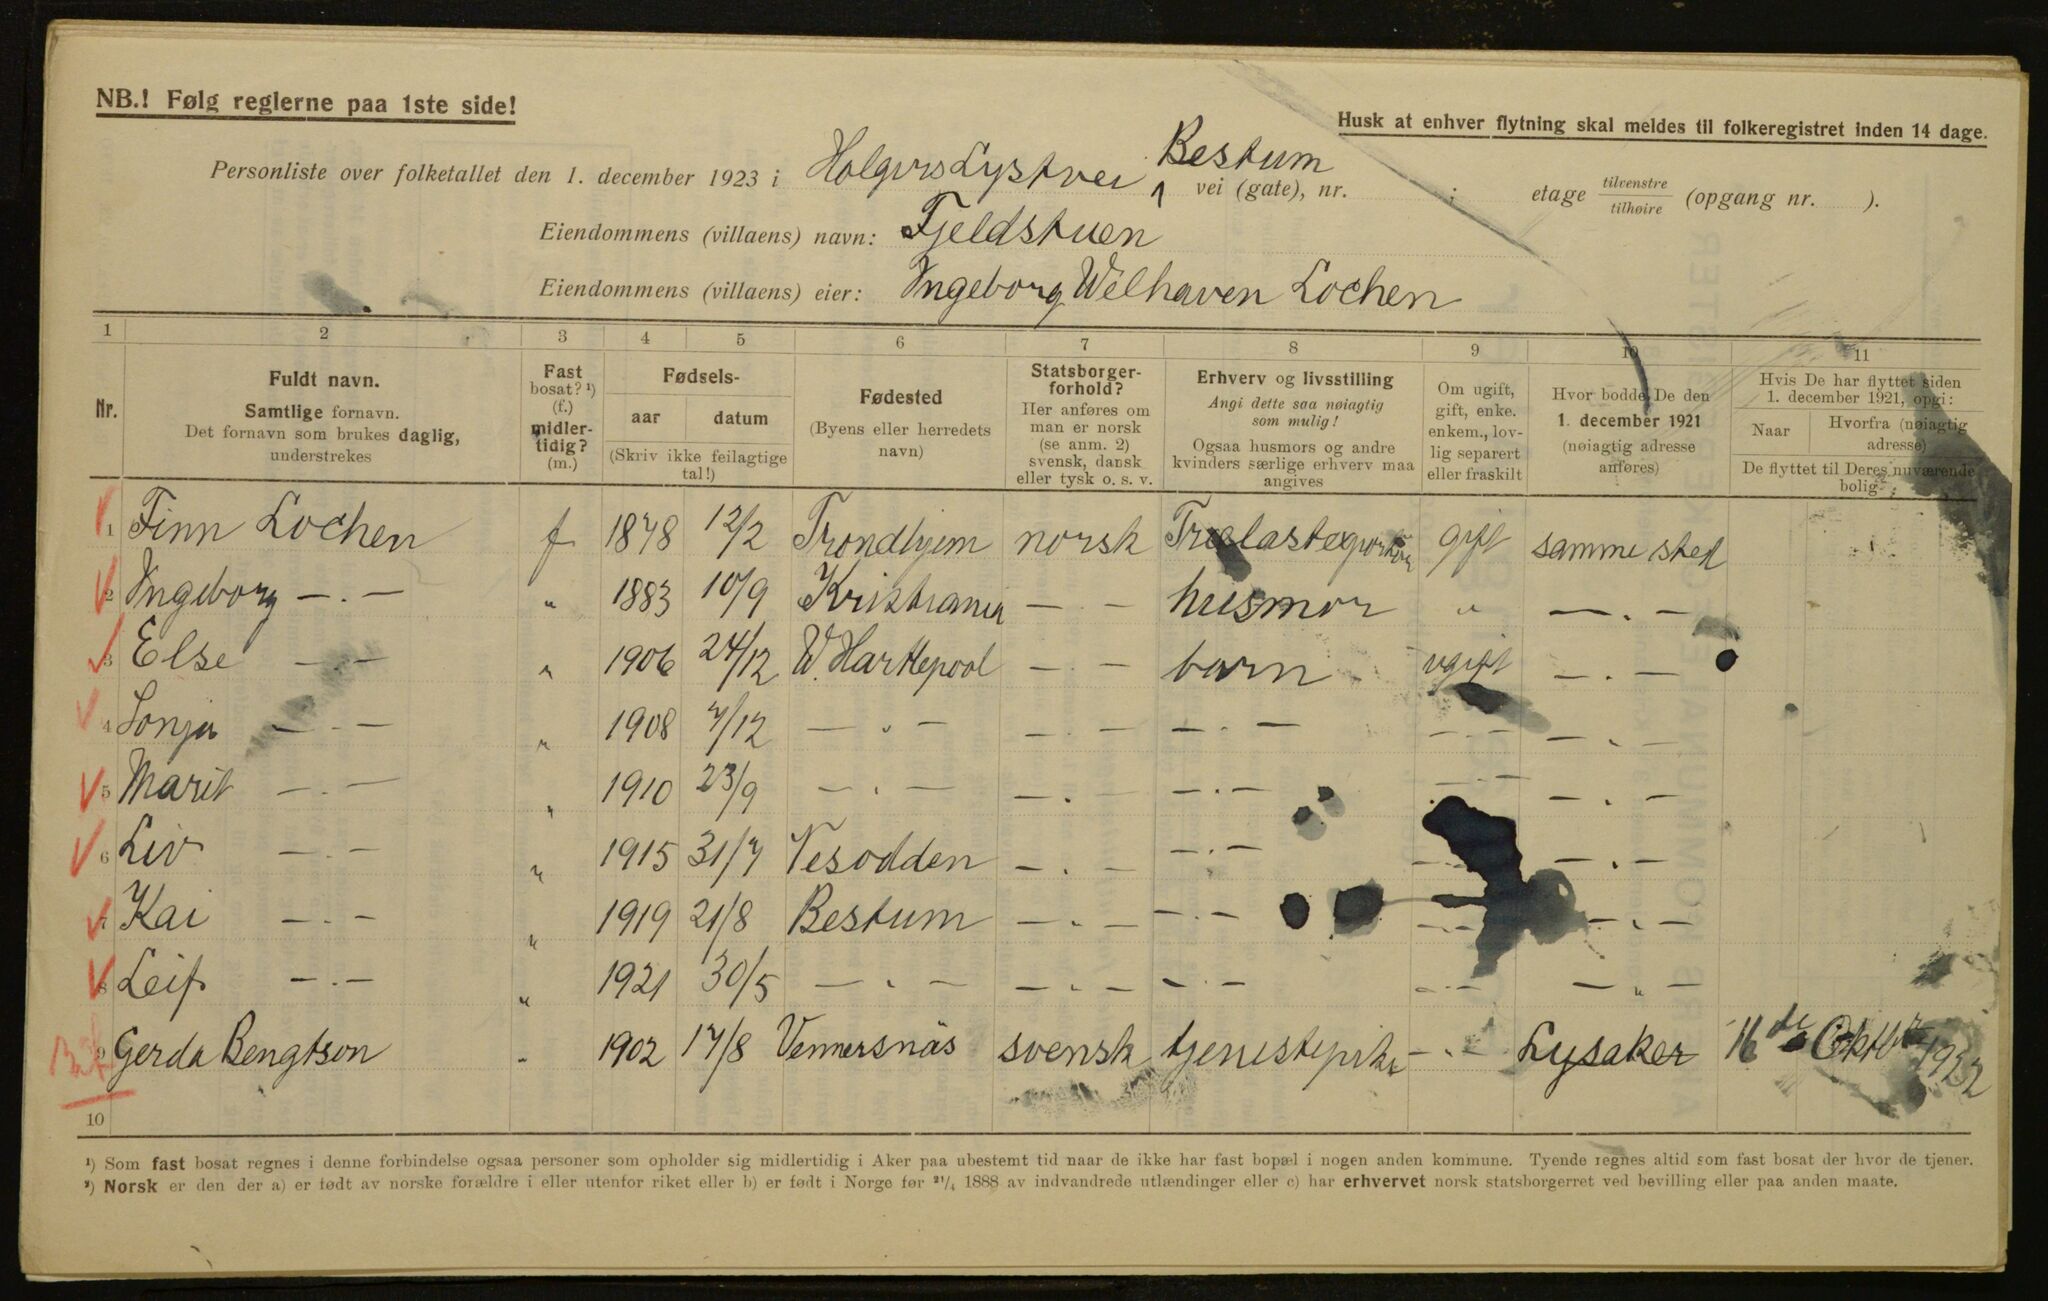 NB.! Følg reglerne paa 1ste side!
Husk at enhver flytning skal meldes til folkeregistret inden 14 dage.
Bestum
Personliste over folketallet den 1. december 1923 i Holgerslystvei vei (gate), nr. ; etage tilvenstre tilhøire (opgang nr. ).
Eiendommens (villaens) navn: Fjeldstuen
Eiendommens (villaens) eier: Ingeborg Welhaven Lochen
1 2 3 4 5 6 7 8 9 10 11
Nr.
Fuldt navn.
Samtlige fornavn.
Det fornavn som brukes daglig,
understrekes
Fast
bosat? ¹)
(f.)
midler-
tidig?
(m.)
Fødsels-
aar datum
(Skriv ikke feilagtige
tal!)
Fødested
(Byens eller herredets
navn)
Statsborger-
forhold?
Her anføres om
man er norsk
(se anm. 2)
svensk, dansk
eller tysk o. s. v.
Erhverv og livsstilling
Angi dette saa nøiagtig
som mulig!
Ogsaa husmors og andre
kvinders særlige erhverv maa
angives
Om ugift,
gift, enke.
enkem., lov-
lig separert
eller fraskilt
Hvor bodde De den
1. december 1921
(nøiagtig adresse
anføres)
Hvis De har flyttet siden
1. december 1921, opgi:
Naar Hvorfra (nøiagtig
adresse)
De flyttet til Deres nuværende
bolig
1 Finn Lochen f 1878 12/2 Trondhjem norsk Trælasteksportør gift samme sted
2 Ingeborg —.— " 1883 10/9 Kristiania —.— husmor " —.—
3 Else —.— " 1906 24/12 W. Hartlepool —.— barn ugift —.—
4 Sonja —.— " 1908 7/12 —.— —.— —.— —.— —.—
5 Marit —.— " 1910 23/9 —.— —.— —.— —.— —.—
6 Liv —.— " 1915 31/7 Nesodden —.— —.— —.— —.—
7 Kai —.— " 1919 21/8 Bestum —.— —.— —.— —.—
8 Leif —.— " 1921 30/5 —.— —.— —.— —.— —.—
9 Gerda Bengtson " 1902 17/8 Vennersnäs svensk tjenestepike —.— Lysaker 16de Oktbr 1922
10
¹) Som fast bosat regnes i denne forbindelse ogsaa personer som opholder sig midlertidig i Aker paa ubestemt tid naar de ikke har fast bopæl i nogen anden kommune. Tyende regnes altid som fast bosat der hvor de tjener.
²) Norsk er den der a) er født av norske forældre i eller utenfor riket eller b) er født i Norge før ²¹/₄ 1888 av indvandrede utlændinger eller c) har erhvervet norsk statsborgerret ved bevilling eller paa anden maate.